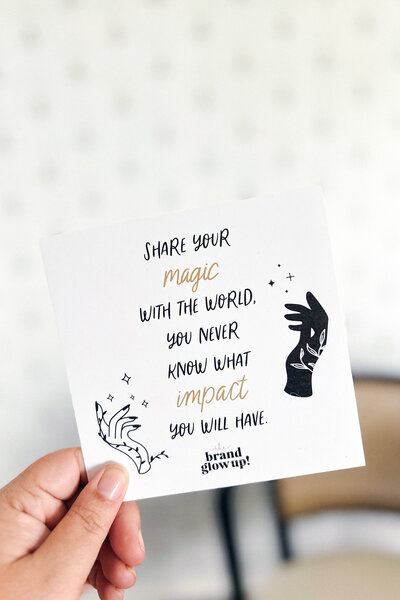 SHARE YOUR
magic
WITH THE WORLD,
YOU NEVER
KNOW WHAT
impact
YOU WILL HAVE.
the
brand
glow up!